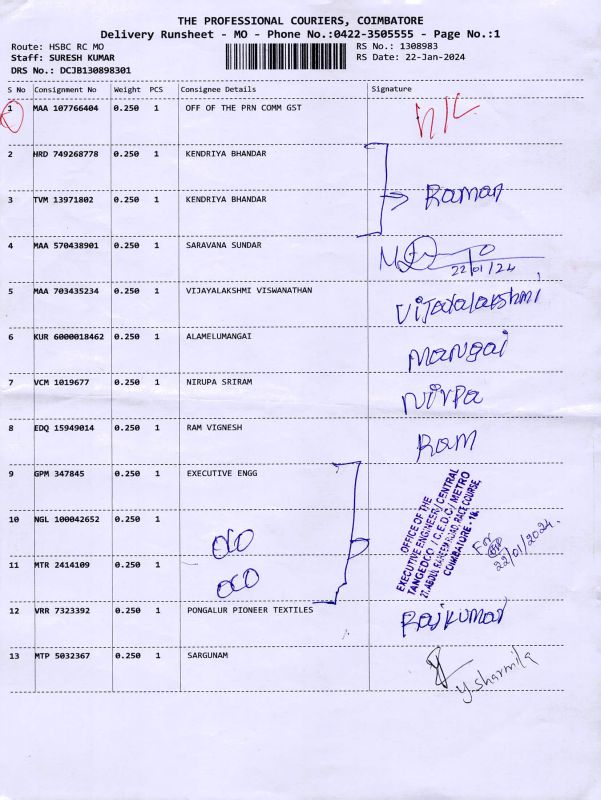 THE PROFESSIONAL COURIERS, COIMBATORE
Delivery Runsheet - MO - Phone No.:0422-3505555 - Page No.:1
Route: HSBC RC MO
RS No.: 1308983
Staff: SURESH KUMAR
RS Date: 22-Jan-2024
DRS No.: DCJB130898301
S No Consignment No Weight PCS Consignee Details Signature
1 MAA 107766404 0.250 1 OFF OF THE PRN COMM GST N/C
2 HRD 749268778 0.250 1 KENDRIYA BHANDAR
3 TVM 13971802 0.250 1 KENDRIYA BHANDAR Raman
4 MAA 570438901 0.250 1 SARAVANA SUNDAR
22/01/24
5 MAA 703435234 0.250 1 VIJAYALAKSHMI VISWANATHAN Vijayalakshmi
6 KUR 6000018462 0.250 1 ALAMELUMANGAI Mangai
7 VCM 1019677 0.250 1 NIRUPA SRIRAM Nirpa
8 EDQ 15949014 0.250 1 RAM VIGNESH Ram
9 GPM 347845 0.250 1 EXECUTIVE ENGG
10 NGL 100042652 0.250 1
11 MTR 2414109 0.250 1
OFFICE OF THE
EXECUTIVE ENGINEER / CENTRAL
TANGEDCO / C.E.D.C / METRO
27, ABDUL RAHEEM ROAD, RACE COURSE,
COIMBATORE - 18.
For
22/01/2024.
12 VRR 7323392 0.250 1 PONGALUR PIONEER TEXTILES Rajkumar
13 MTP 5032367 0.250 1 SARGUNAM
y. sharmila